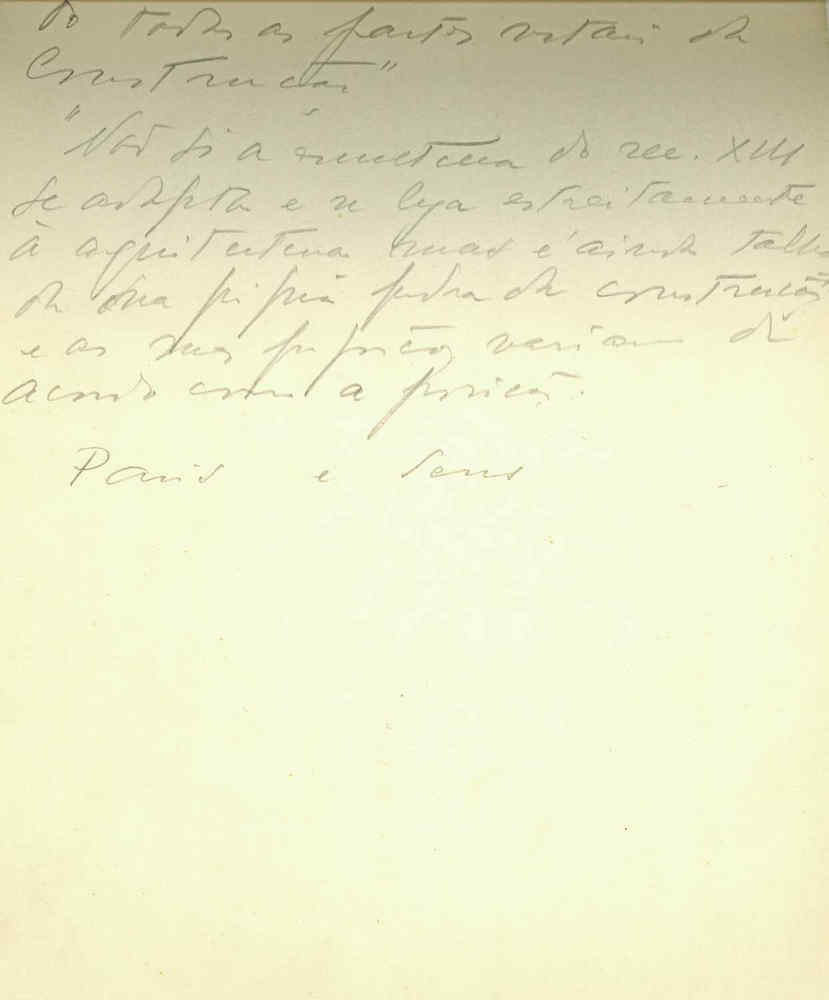 do todas as partes vitais da
Construção"
"Não só a escultura do sec. XIII
se adapta e se liga estreitamente
à arquitectura mas é ainda talha
da na própria pedra da construção
e as suas proporções variam de
acordo com a posição.
Paris e Sens